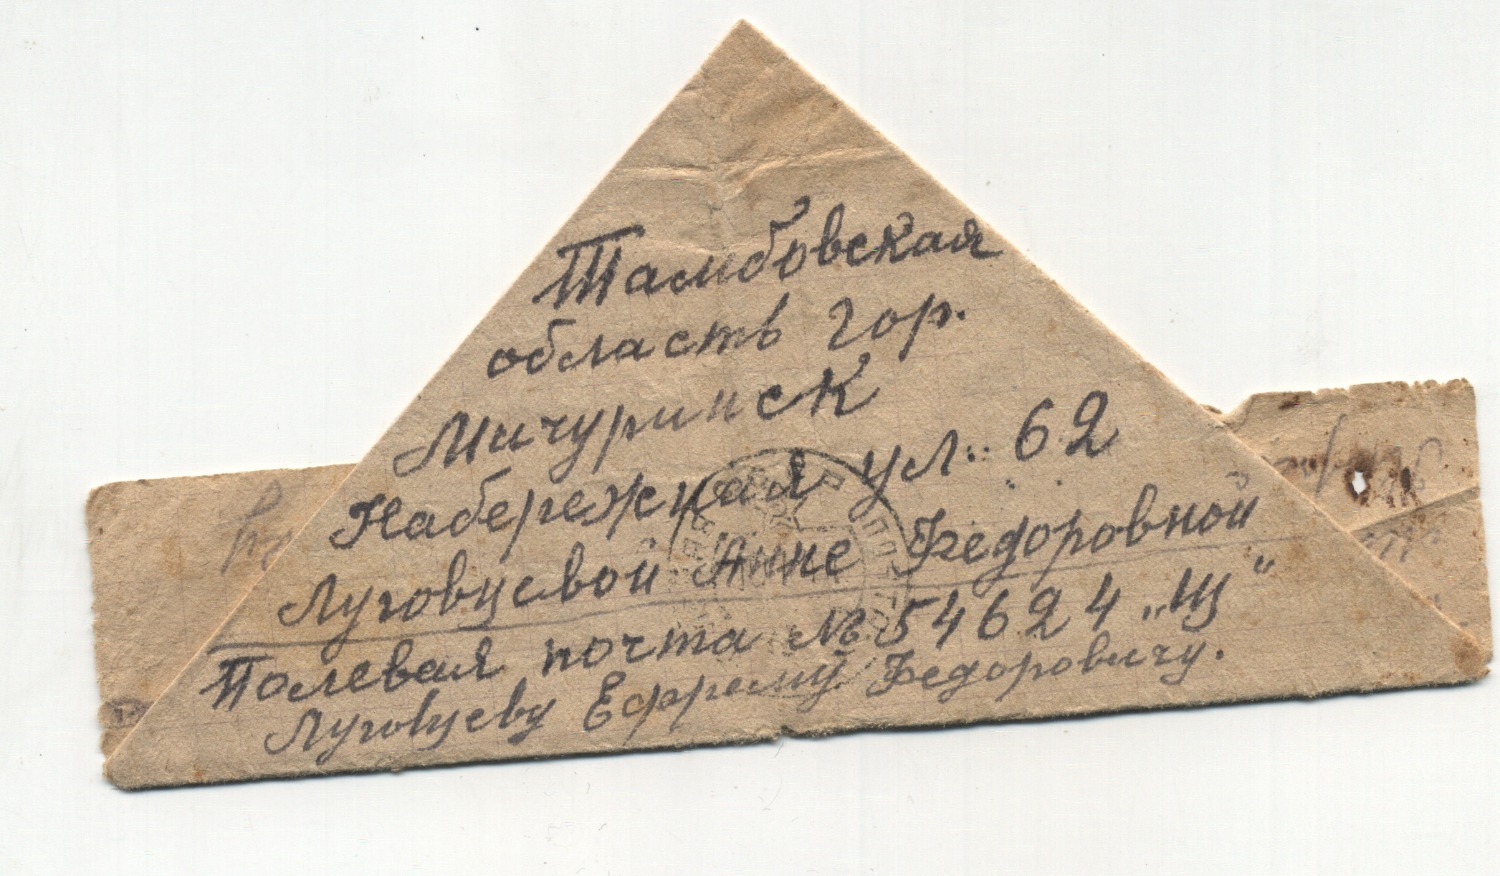 Тамбовская
область гор.
Мичуринск
Набережная ул. 62
Луговцевой Анне Федоровной
Полевая почта № 54624 „Щ"
Луговцеву Ефрему Федоровичу.